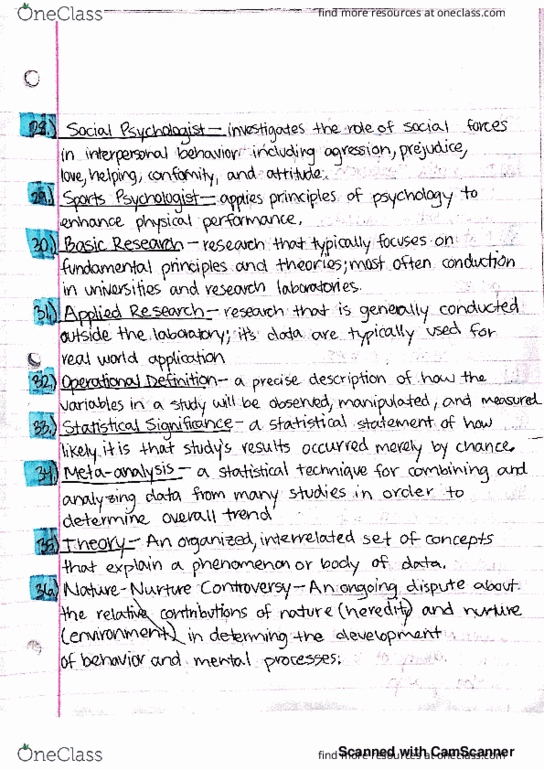 OneClass
find more resources at oneclass.com
28.) Social Psychologist - investigates the role of social forces
in interpersonal behavior including agression, prejudice,
love, helping, conformity, and attitude.
29.) Sports Psychologist - applies principles of psychology to
enhance physical performance.
30.) Basic Research - research that typically focuses on
fundamental principles and theories; most often conduction
in universities and research laboratories.
31.) Applied Research - research that is generally conducted
outside the laboratory; it's data are typically used for
real world application
32.) Operational Definition - a precise description of how the
variables in a study will be observed, manipulated, and measured
33.) Statistical Significance - a statistical statement of how
likely it is that study's results occurred merely by chance.
34.) Meta-analysis - a statistical technique for combining and
analyzing data from many studies in order to
determine overall trend
35.) Theory - An organized, interrelated set of concepts
that explain a phenomenon or body of data.
36.) Nature-Nurture Controversy - An ongoing dispute about
the relative contributions of nature (heredity) and nurture
(environment) in determing the development
of behavior and mental processes.
OneClass
find more resources at oneclass.com
Scanned with CamScanner